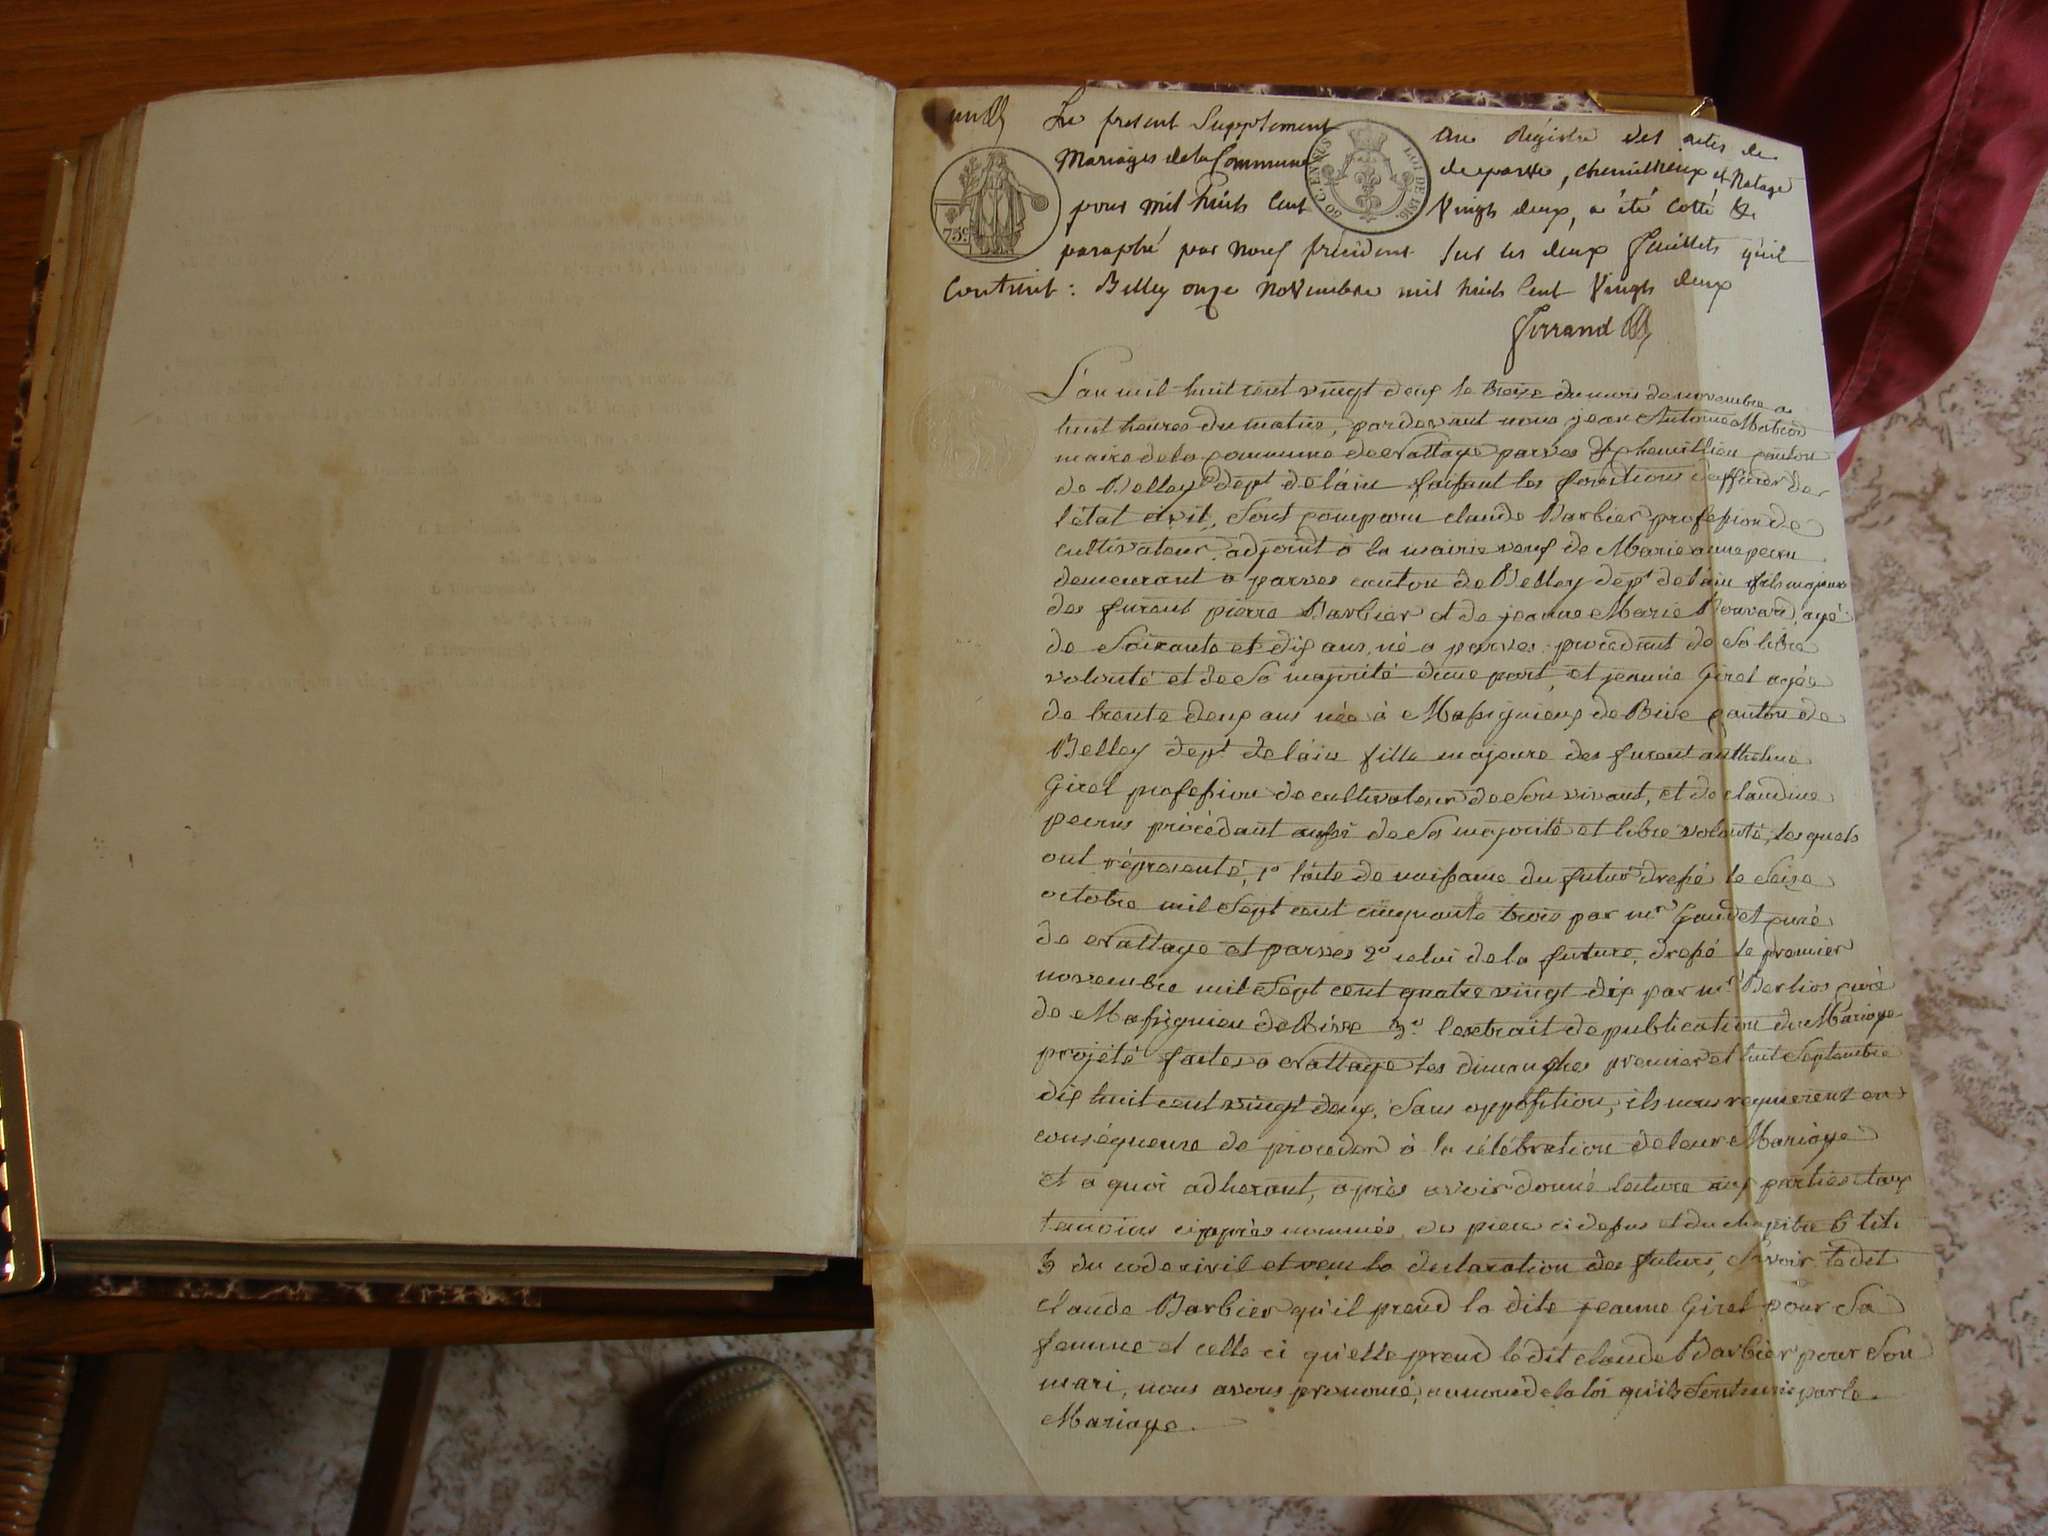 Le present Supplement au Régistre des actes de
Mariages de la Commune de parve, chemillieux et Natage
pour mil huit Cent Vingt deux, a été Cotté &
paraphé par Nous président sur les deux feuillets qu'il
Contient : Belley onze Novembre mil huit Cent Vingt deux
ferrand
75c
60 C. EN SUS
LOI DE 1816.
L'an mil huit cent vingt deux le treize du mois de novembre a
huit heures du matin, pardevant nous jean Antoine
maire de la commune de Nattage parves & chemillieu canton
de Belley dept de l'ain faisant les fonctions d'officier de
l'état civil, Sont comparu claude Barbier profession de
cultivateur adjoint à la mairie veuf de Marie anne pecru
demeurant a parves canton de Belley dept de lain fils majeur
des furent pierre Barbier et de jeanne Marie Bouvard, agé
de Soixante et dix ans, né a parves procedant de Sa libre
volonté et de Sa majorité d'une part, et jeanne Girel agée
de trente deux ans née à Massignieux de Rive canton de
Belley dept de lain fille majeure des furent anthelme
Girel profession de cultivateur de Son vivant, et de claudine
pecrus procédant aussi de Sa majorité et libre volonté, les quels
ont représenté, 1o l'acte de naissance du futur dressé le Seize
octobre mil Sept cent cinquante trois par mr Gaudet curé
de Nattage et parves 2o celui de la future, dressé le premier
novembre mil Sept cent quatre vingt dix par mr Berlios curé
de Massignieu de Rive 3o l'extrait de publication du Mariage
projété faites a Nattage les dimanches premier et huit Septembre
dix huit cent vingt deux, Sans opposition, ils nous requierent en
conséquence de proceder à la célébration de leur Mariage
et a quoi adherant, après avoir donné lecture aux parties et aux
temoins ci après nommés, des piece ci dessus et du chapitre 6 titre
5 du code civil et veu la declaration des futurs, Savoir ledit
claude Barbier qu'il prend la dite jeanne Girel pour Sa
femme et celle ci qu'elle prend le dit claude Barbier pour Son
mari, nous avons prononcé, au nom de la loi qu'ils Sont unis par le
Mariage.